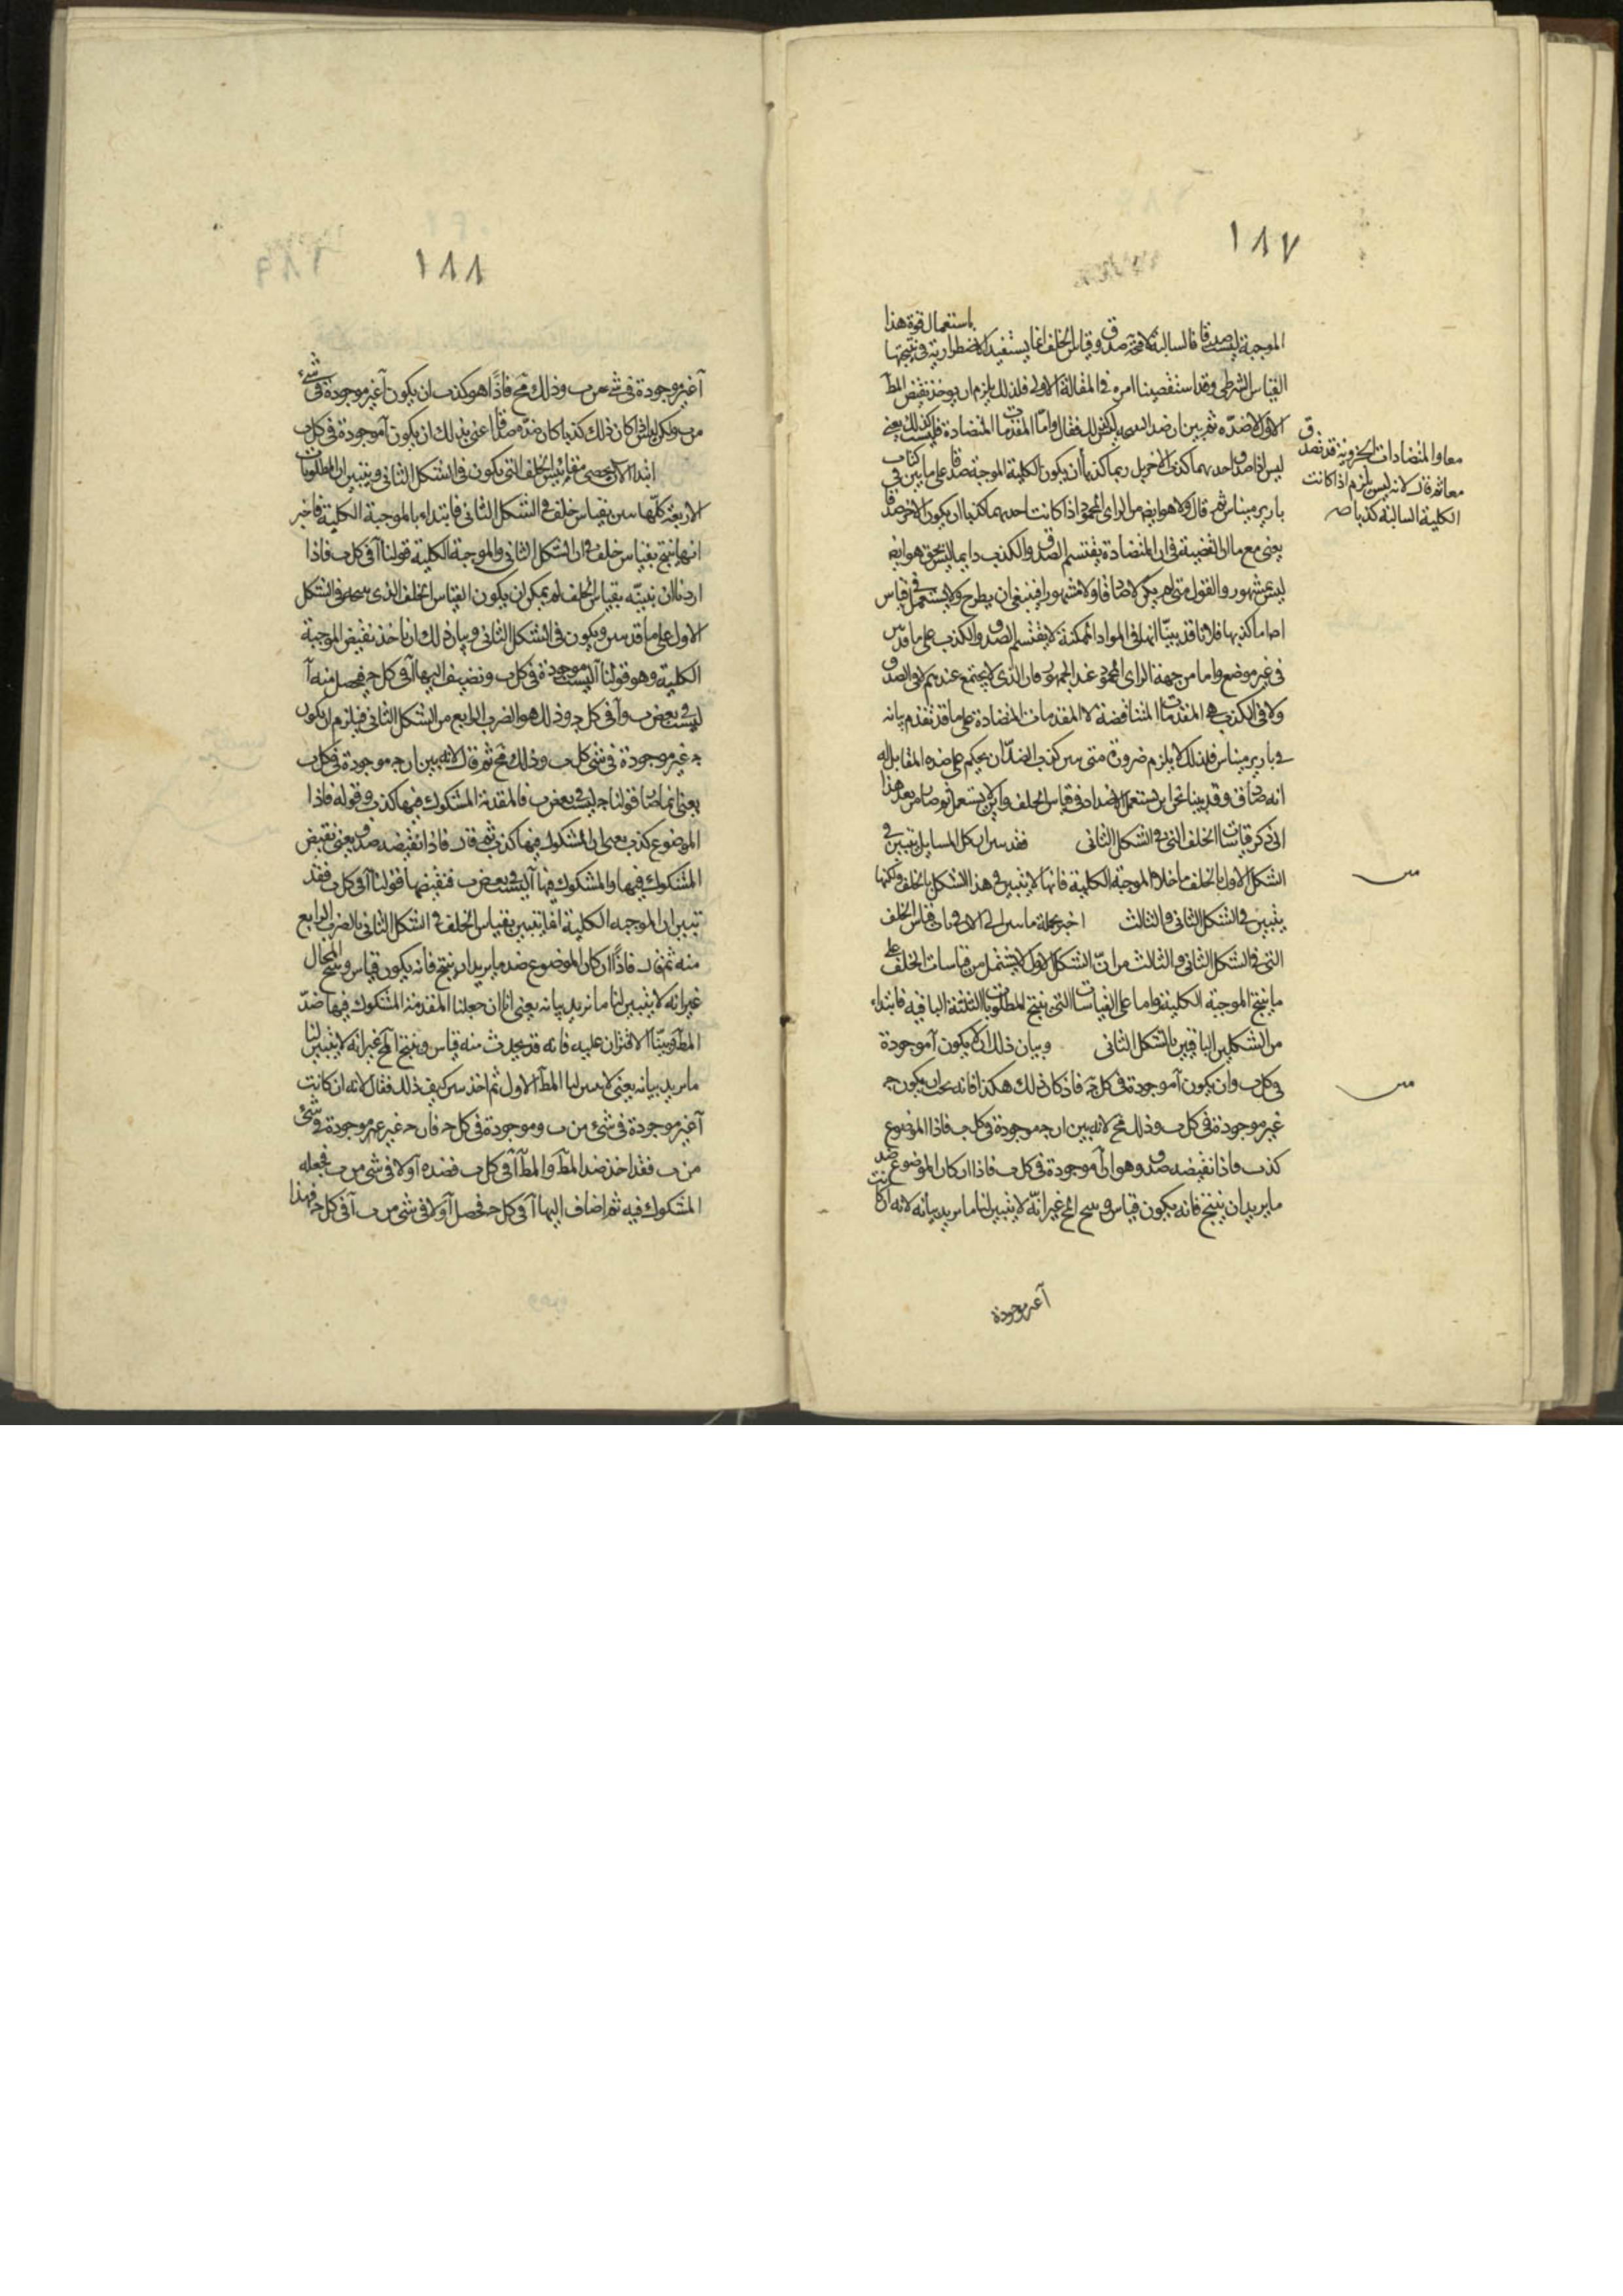 ١٨٧
باستعمال قوة هذا
الموجبة ليست صدقا فالسالبة لا محة صدق وقياس الخلف انما يستفيد الاضطرارية في نتيجتها
القياس الشرطي وقد استقصينا امره في المقالة الاولى فلذلك يلزم ان يوخذ نقيض المط
الاول لا ضده ثم بين ان ضد فقال واما المقدمات المتضادة فليست كذلك يعني
ليس اذا صدق احديهما كذب الاخرى بل ربما كذبتا ان يكون الكلية الموجبة صدقا على ما بين في كتاب
بارير ميناس ثم قال ولا هو ايضا من الراى المحمود اذا كانت احديهما كذبا ان يكون الاخر صدقا
يعني مع مال القضية في ان المتضادة يقتسم الصدق والكذب دايما ليس بحق هو ايضا
ليس مشهور والقول متى لم يكن لا صادقا ولا مشهورا فينبغي ان يطرح ولا يستعمل في قياس
اما ما كذبها فلانا قد بينا انها في المواد الممكنة لا يقتسم الصدق والكذب على ما قد بين
في غير موضع واما من جهة الراى المحمود عند الجمهور فان الذي لا يجتمع عندهم لا في الصدق
ولا في الكذب هي المقدمات المتناقضة لا المقدمات المتضادة على ما قد تقدم بيانه
في بارير ميناس فلذلك لا يلزم ضرورة متى بين كذب الضد ان يحكم على ضده المقابل له
انه صادق وقد بينا نحن اين يستعمل الاضداد في قياس الخلف واين لا يستعمل ثم صار من بعد هذا
الى ذكر قياسات الخلف التي في الشكل الثاني فقد بين ان كل المسايل يتبين في
الشكل الاول بالخلف ما خلا الموجبة الكلية فانها لا يتبين في هذا الشكل بالخلف ولكنها
يتبين في الشكل الثاني والثالث اخبر بجملة ما بين الى الان في قياس الخلف
التي في الشكل الثاني والثالث من ان الشكل الاول لا يشتمل من قياسات الخلف على
ما ينتج الموجبة الكلية واما على القياسات التي ينتج المطلوبات الثلثة الباقية فابتداء
من الشكلين الباقيين بالشكل الثاني وبيان ذلك ان لا يكون آ موجودة
في كل ب وان يكون آ موجودة في كل ج فاذ كان ذلك هكذا فانه يجب ان يكون ج
غير موجودة في كل ب وذلك مح لانه بين ان ج موجودة في كل ب فاذا الموضوع
كذب فاذا نقيضه صدق وهو ان آ موجودة في كل ب فاذا ان كان الموضوع ضد
ما يريد ان ينتج فانه يكون قياس وينتج المح غير انه لا يتبين لنا ما نريد بيانه لانه ان كانت
آ غير موجودة
ق
معا والمتضادات الجزوية قد تصدق
معا ثم قال لانه ليس يلزم اذا كانت
الكلية السالبة كذبا صح
متن
متن
١٨٨
آ غير موجودة في شي من ب وذلك مح فاذا هو كذب ان يكون آ غير موجودة في شيء
من ب ولكن ليس اذا كان ذلك كذبا كان ضده صدقا اعني بذلك ان يكون آ موجودة في كل ب
ابتدا الان يحصي مقاييس الخلف التي يكون في الشكل الثاني ويتبين ان المطلوبات
الاربعة كلها تبين بقياس خلف في الشكل الثاني فابتداء بالموجبة الكلية فاخبر
انها ينتج بقياس خلف في ان الشكل الثاني والموجبة الكلية قولنا آ في كل ب فاذا
اردنا ان نبينه بقياس الخلف لم يمكن ان يكون القياس الخلف الذي في الشكل
الاول على ما قد بين ويكون في الشكل الثاني وبيان ذلك ان ناخذ نقيض الموجبة
الكلية وهو قولنا آ ليست موجودة في كل ب ونضيف اليها آ في كل ج فيحصل منه آ
ليست في بعض ب وآ في كل ج وذلك هو الضرب الرابع من الشكل الثاني فيلزم ان يكون
ج غير موجودة في شي كل ب وذلك مح ثم قال لانه بين ان ج موجودة في كل ب
يعني انما صار قولنا ج ليست في بعض ب فالمقدمة المشكوك فيها كذب وقوله فاذا
الموضوع كذب يعني ان المشكوك فيها كذب ثم قال فاذا نقيضه صدق يعني نقيض
المشكوك فيها والمشكوك فيها آ ليست في بعض ب فنقيضها قولنا آ في كل ب فقد
تبين ان الموجبه الكلية انما يتبين بقياس الخلف في الشكل الثاني بالضرب الرابع
منه ثم قال فاذا ان كان الموضوع ضد ما يريد ان ينتج فانه يكون قياس وينتج المحال
غير انه لا يتبين لنا ما نريد بيانه يعني انا ان جعلنا المقدمة المشكوك فيها ضد
المط وبينا الاقتران عليه فانه قد يحدث منه قياس وينتج المح غير انه لا يتبين لنا
ما نريد بيانه يعني لا يبين لنا المط الاول ثم اخذ يبين كيف ذلك فقال لانه ان كانت
آ غير موجودة في شيء من ب وموجودة في كل ج فان ج غير موجودة في شيء
من ب فقد اخذ ضد المط والمط آ في كل ب فضده آ ولا في شي من ب فجعله
المشكوك فيه ثم اضاف اليها آ في كل ج فحصل آ ولا في شي من ب آ في كل ج فهذا